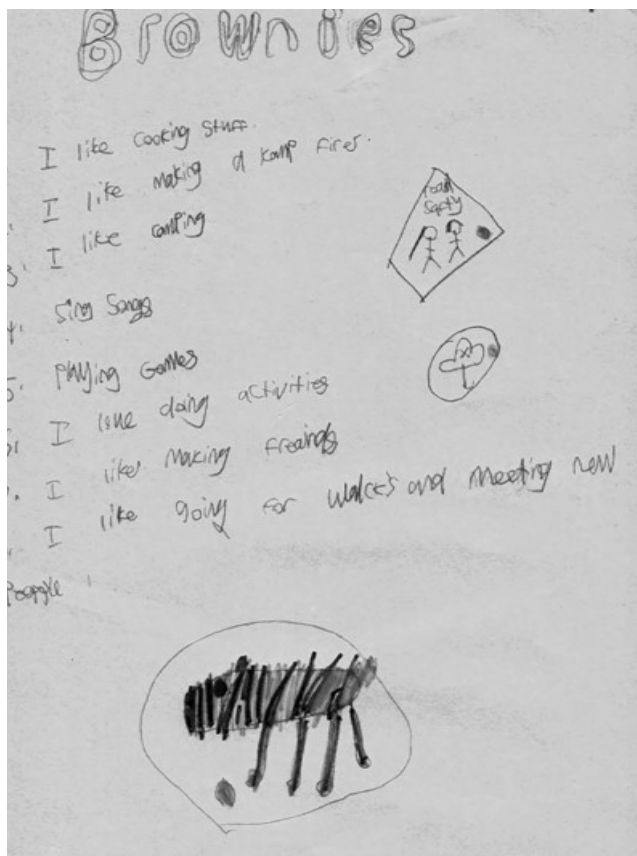 Brownies
I like cooking stuff.
I like making a kamp fires.
3. I like camping
road
safty
4. Sing Songs
5. Playing Games
6. I love doing activities
I likes making freinds
I like going for walks and meeting new